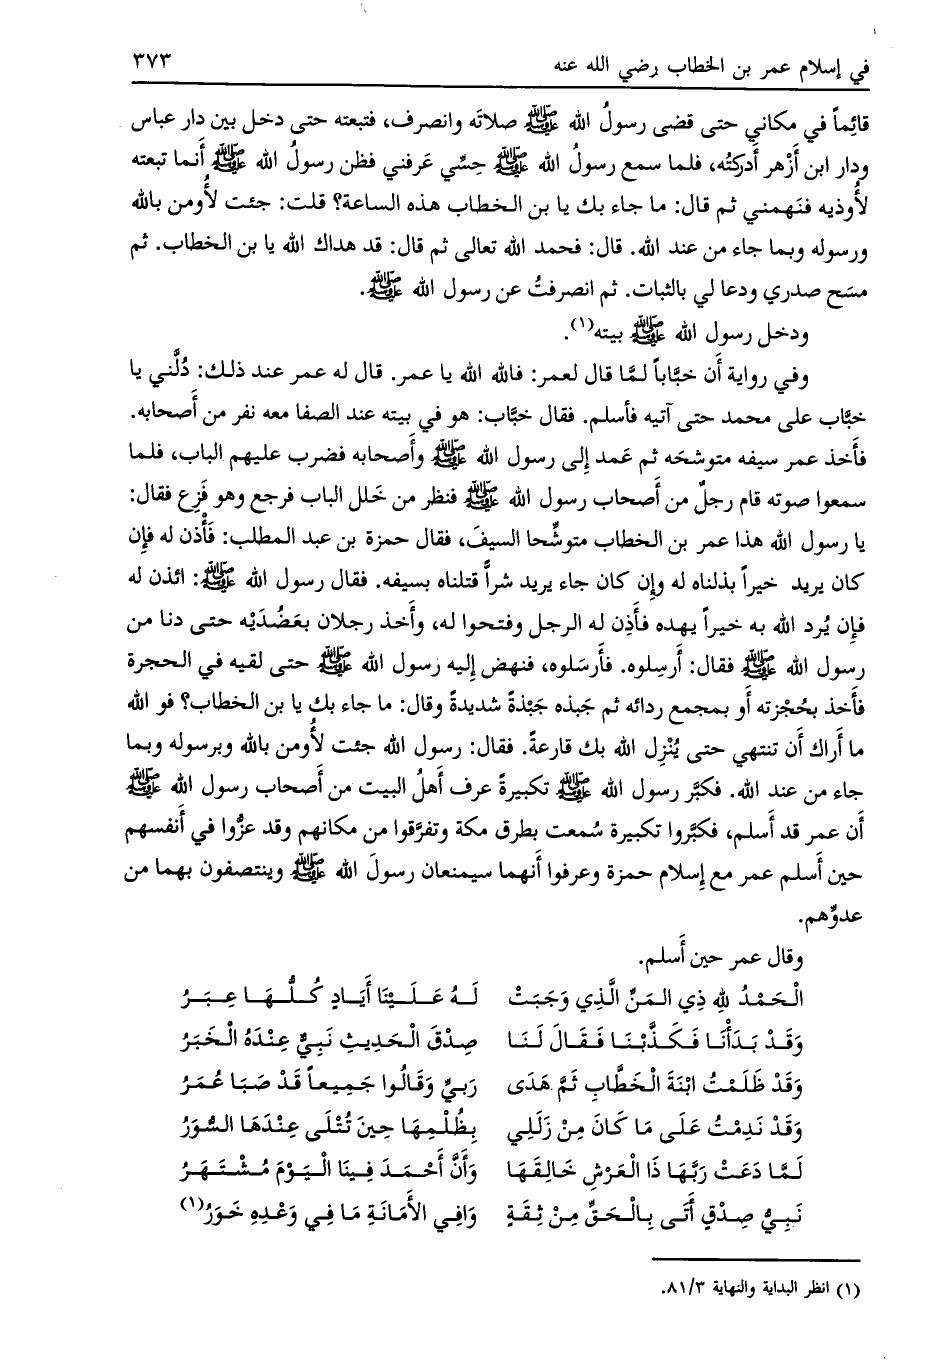 في إسلام عمر بن الخطاب رضي الله عنه ٣٧٣
قائِماً في مكاني حتى قضى رسولُ الله ﷺ صلاتَه وانصرف، فتبعته حتى دخل بين دار عباس
ودار ابن أَزْهر أَدركتُه، فلما سمع رسولُ الله ﷺ حِسِّي عَرفني فظن رسولُ الله ﷺ أَنما تبعته
لأُوذيه فنَهمني ثم قال: ما جاء بك يا بن الخطاب هذه الساعة؟ قلت: جئت لأُومن بالله
ورسوله وبما جاء من عند الله. قال: فحمد الله تعالى ثم قال: قد هداك الله يا بن الخطاب. ثم
مسَح صدري ودعا لي بالثبات. ثم انصرفتُ عن رسول الله ﷺ.
ودخل رسول الله ﷺ بيته(١).
وفي رواية أَن خبَّاباً لمَّا قال لعمر: فالله الله يا عمر. قال له عمر عند ذلك: دُلَّني يا
خبَّاب على محمد حتى آتيه فأسلم. فقال خبَّاب: هو في بيته عند الصفا معه نفر من أَصحابه.
فأَخذ عمر سيفه متوشحَه ثم عَمد إِلى رسول الله ﷺ وأَصحابه فضرب عليهم الباب، فلما
سمعوا صوته قام رجلٌ من أَصحاب رسول الله ﷺ فنظر من خَلل الباب فرجع وهو فَزِع فقال:
يا رسول الله هذا عمر بن الخطاب متوشِّحا السيفَ، فقال حمزة بن عبد المطلب: فَأْذن له فإِن
كان يريد خيراً بذلناه له وإِن كان جاء يريد شراً قتلناه بسيفه. فقال رسول الله ﷺ: ائذن له
فإن يُرد الله به خيراً يهده فأَذِن له الرجل وفتحوا له، وأَخذ رجلان بعَضُدَيْه حتى دنا من
رسول الله ﷺ فقال: أَرسِلوه. فأَرسَلوه، فنهض إِليه رسول الله ﷺ حتى لقيه في الحجرة
فأَخذ بحُجْزته أَو بمجمع ردائه ثم جَبذه جَبْذةً شديدةً وقال: ما جاء بك يا بن الخطاب؟ فو الله
ما أَراك أَن تنتهي حتى يُنْزِل الله بك قارعةً. فقال: رسول الله جئت لأُومن بالله وبرسوله وبما
جاء من عند الله. فكبَّر رسول الله ﷺ تكبيرةً عرف أَهلُ البيت من أَصحاب رسول الله ﷺ
أَن عمر قد أَسلم، فكبَّروا تكبيرة سُمعت بطرق مكة وتفرَّقوا من مكانهم وقد عزُّوا في أَنفسهم
حين أَسلم عمر مع إِسلام حمزة وعرفوا أَنهما سيمنعان رسولَ الله ﷺ وينتصفون بهما من
عدوِّهم.
وقال عمر حين أَسلم.
الْحَمْدُ للهِ ذِي المَنِّ الَّذِي وَجَبَتْ لَهُ عَلَيْنَا أَيَادٍ كُلُّهَا عِبَرُ
وَقَدْ بَدَأْنَا فَكَذَّبْنَا فَقَالَ لَنَا صِدْقَ الْحَدِيثِ نَبِيٌّ عِنْدَهُ الْخَبَرُ
وَقَدْ ظَلَمْتُ ابْنَةَ الْخَطَّابِ ثَمَّ هَدَى رَبيِّ وَقَالُوا جَمِيعاً قَدْ صَبَا عُمَرُ
وَقَدْ نَدِمْتُ عَلَى مَا كَانَ مِنْ زَلَلِي بِظُلْمِهَا حِينَ تُتْلَى عِنْدَهَا السُّوَرُ
لَمَّا دَعَتْ رَبَّهَا ذَا الْعَرْشِ خَالِقَهَا وَأَنَّ أَحْمَدَ فِينَا الْيَوْمَ مُشْتَهَرُ
نَبِيُّ صِدْقٍ أَتَى بِالْحَقِّ مِنْ ثِقَةٍ وَافِي الأَمَانَةِ مَا فِي وَعْدِهِ خَوَرُ(١)
(١) انظر البداية والنهاية ٨١/٣.